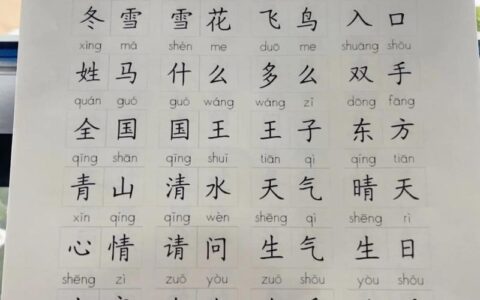 冬雪 雪花 飞鸟 入口
xìng mǎ shén me duō me shuāng shǒu
姓马 什么 多么 双手
quán guó guó wáng wáng zǐ dōng fāng
全国 国王 王子 东方
qīng shān qīng shuǐ tiān qì qíng tiān
青山 清水 天气 晴天
xīn qíng qǐng wèn shēng qì shēng rì
心情 请问 生气 生日
shēng zì zuǒ yòu zuǒ shǒu yòu shǒu